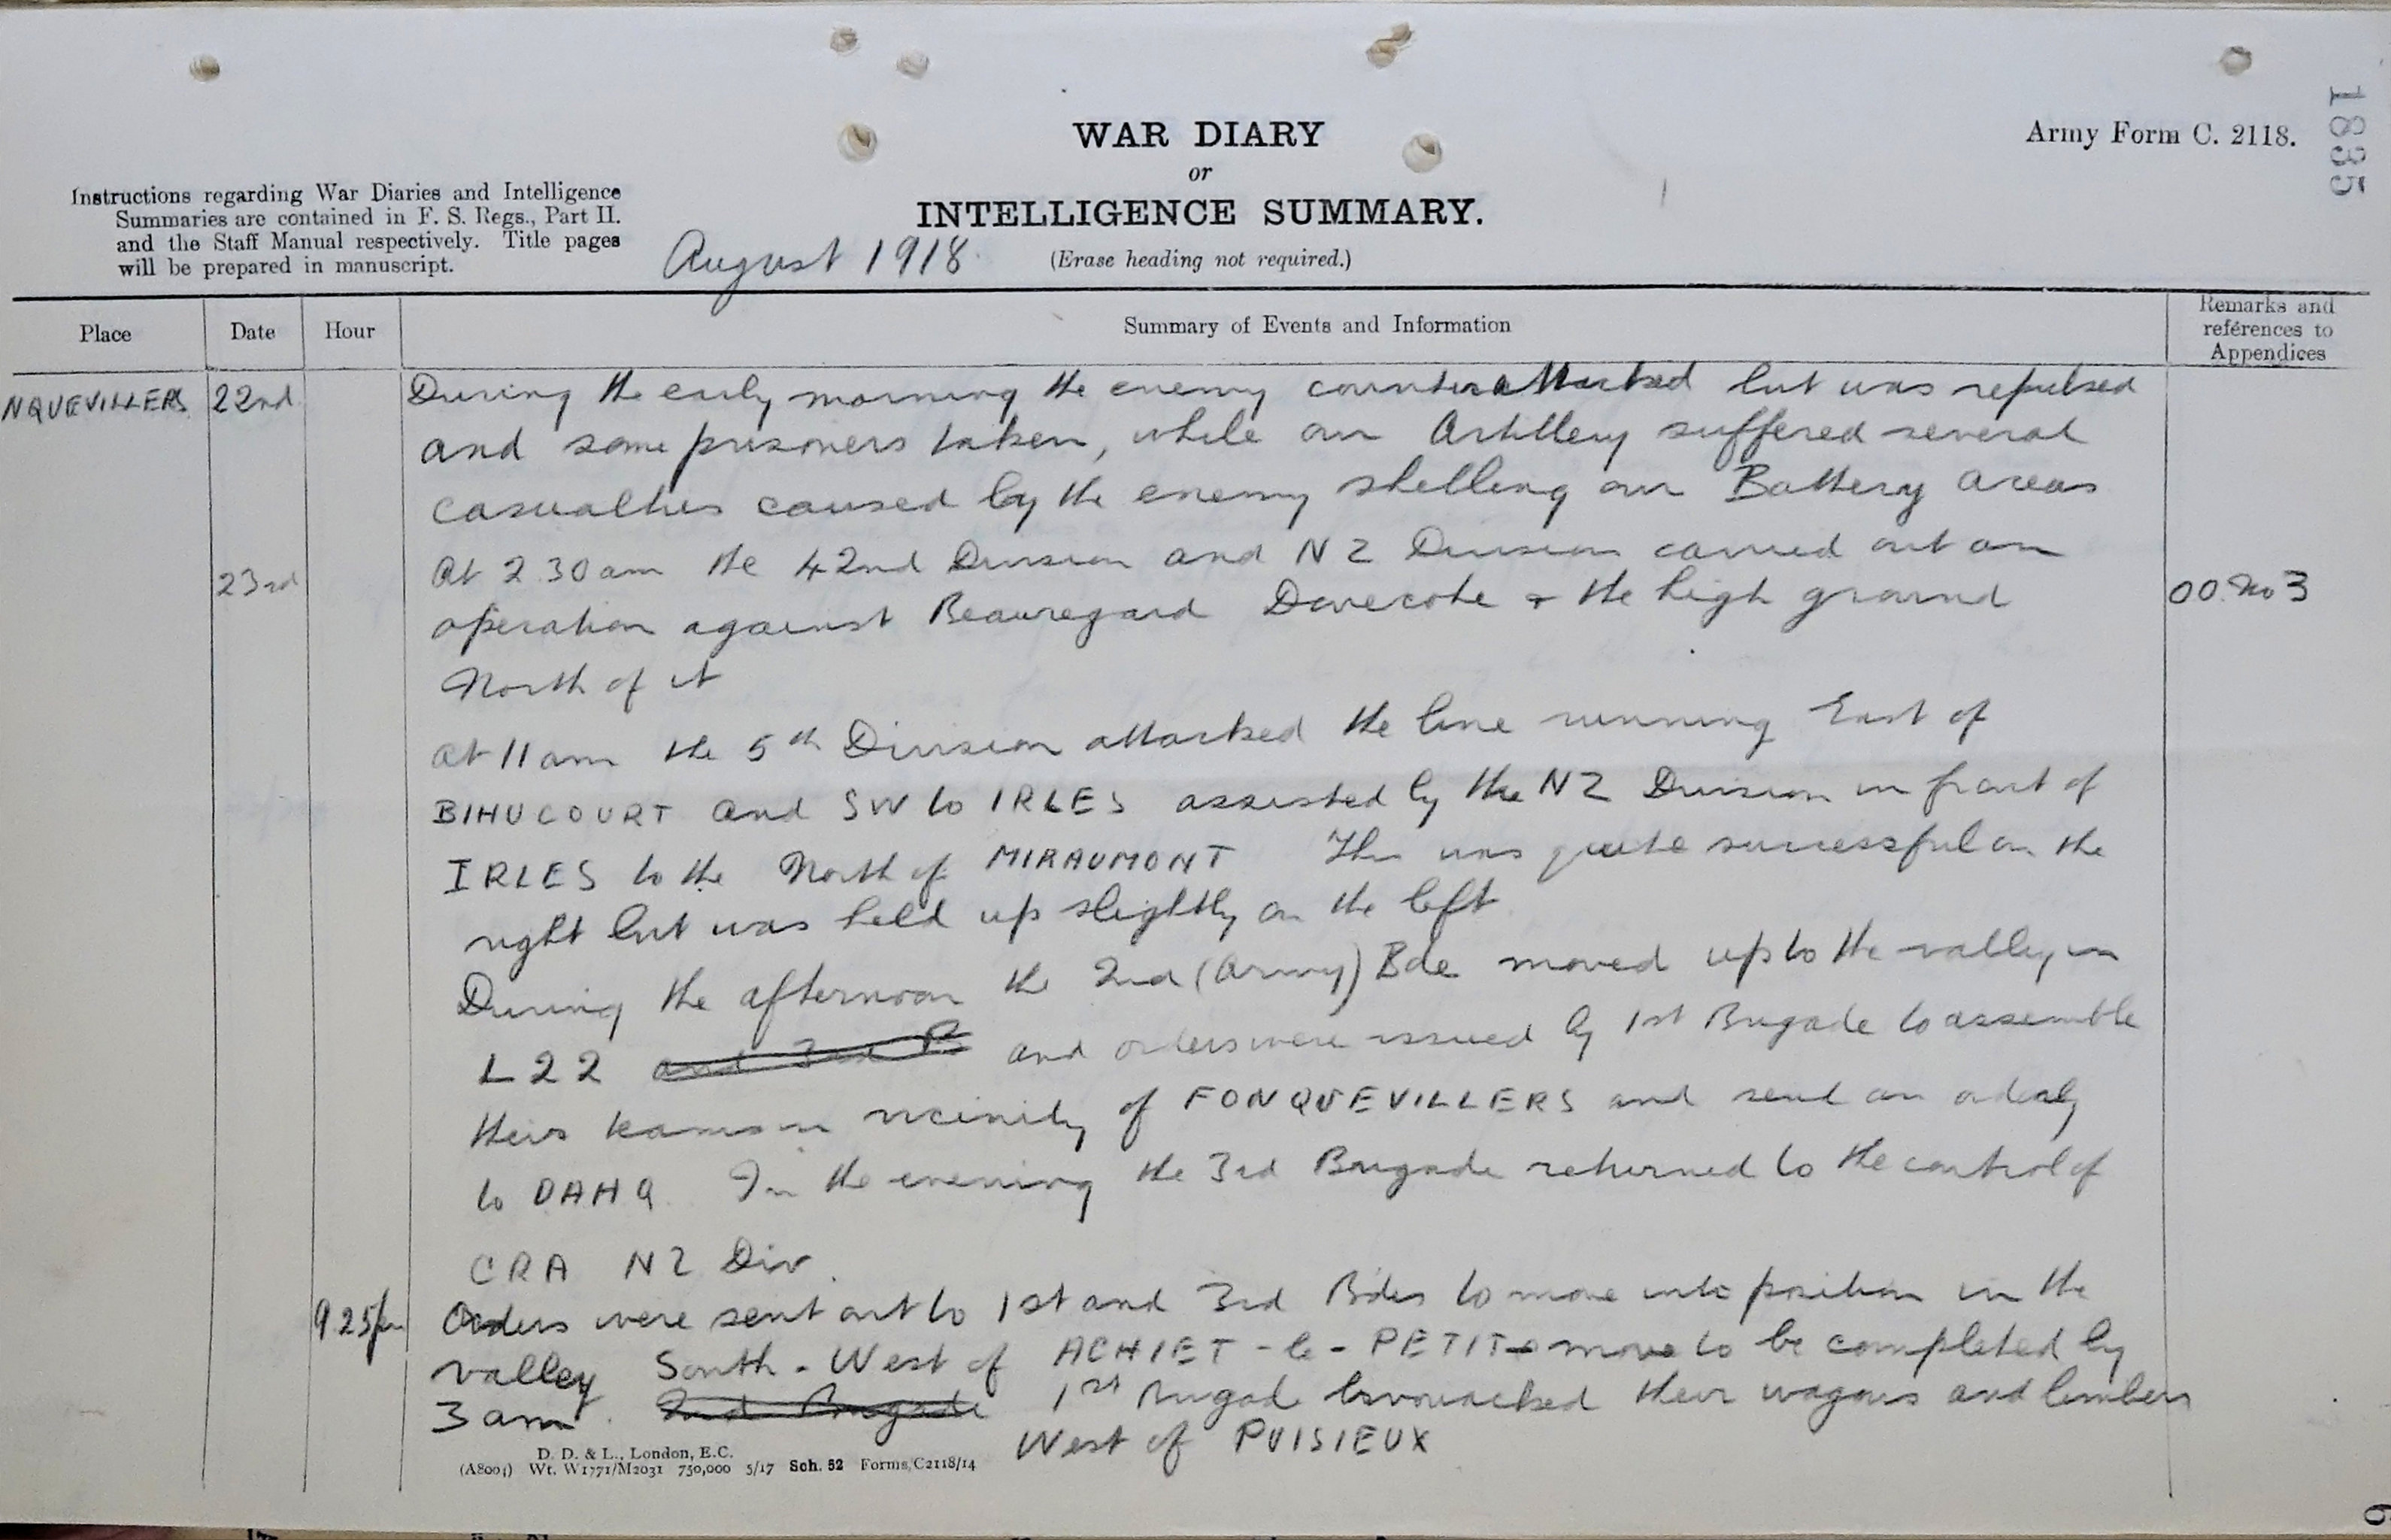 1835
WAR DIARY
or
INTELLIGENCE SUMMARY.
(Erase heading not required.)
Army Form C. 2118.
Instructions regarding War Diaries and Intelligence
Summaries are contained in F. S. Regs., Part II.
and the Staff Manual respectively. Title pages
will be prepared in manuscript.
August 1918
Place Date Hour Summary of Events and Information Remarks and references to Appendices
NQUEVILLERS 22nd During the early morning the enemy counterattacked but was repulsed
and some prisoners taken, while our Artillery suffered several
casualties caused by the enemy shelling our Battery areas
23rd At 2.30 am the 42nd Division and NZ Division carried out an
operation against Beauregard Dovecote & the high ground OO. No 3
North of it
at 11 am the 5th Division attacked the line running East of
BIHUCOURT and SW to IRLES assisted by the NZ Division in front of
IRLES to the North of MIRAUMONT This was quite successful on the
right but was held up slightly on the left
During the afternoon the 2nd (Army) Bde moved up to the valley in
L22 and 3rd B and orders were issued by 1st Brigade to assemble
their teams in vicinity of FONQUEVILLERS and send an orderly
to DAHQ. In the evening the 3rd Brigade returned to the control of
CRA NZ Div.
9 25pm Orders were sent out to 1st and 3rd Bdes to move into position in the
valley South-West of ACHIET-le-PETIT move to be completed by
3 am. 2nd Brigade 1st Brigade bivouacked their wagons and limbers
West of PUISIEUX
D. D. & L., London, E.C.
(A8001) Wt. W1771/M2031 750,000 5/17 Sch. 52 Forms/C2118/14